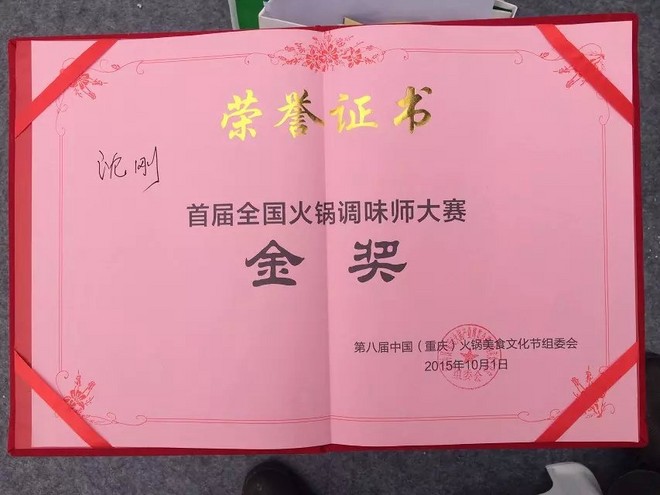 荣誉证书
沈刚
首届全国火锅调味师大赛
金奖
第八届中国（重庆）火锅美食文化节组委会
2015年10月1日
组委会